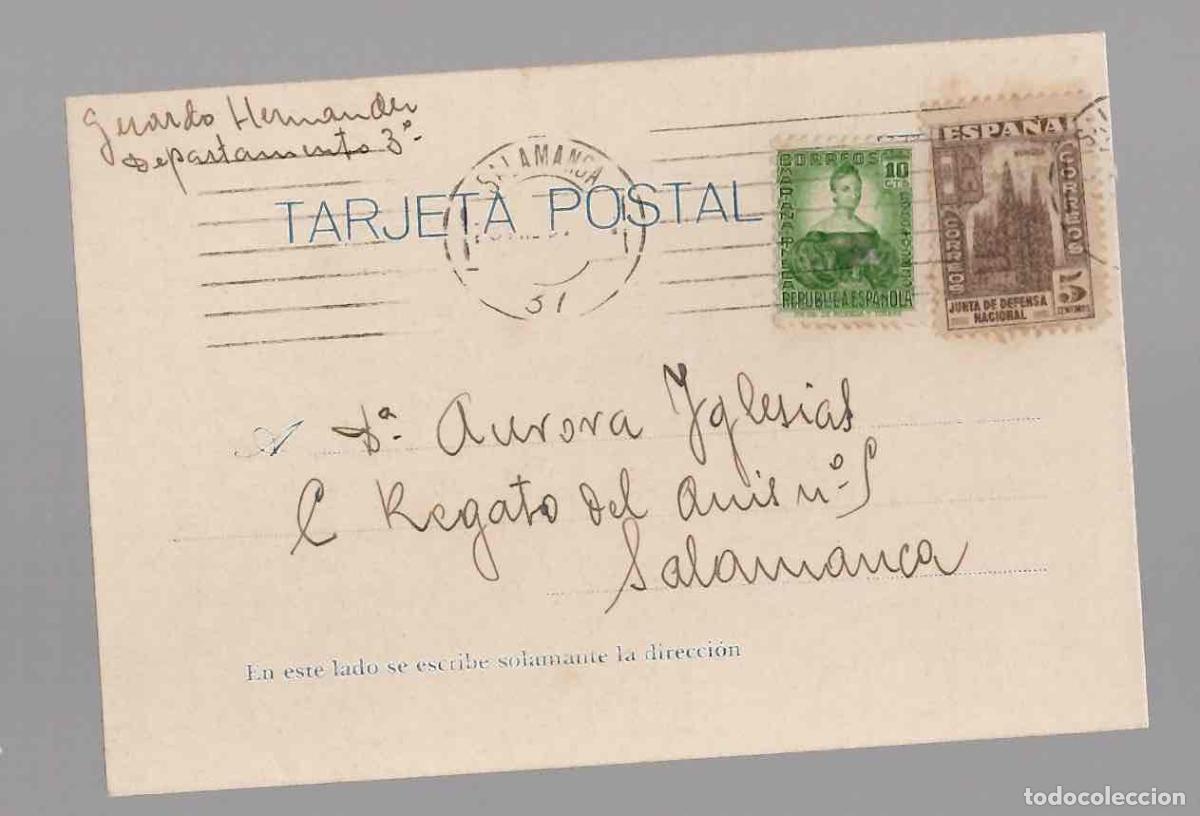 Gerardo Hernander
Departamento 3º-
TARJETA POSTAL
SALAMANCA
ESPAÑA
CORREOS
CORREOS
JUNTA DE DEFENSA
NACIONAL
5
CENTIMOS
CORREOS
10
CTS
MARIANA PINEDA
REPUBLICA ESPAÑOLA
A Dª. Aurora Yglesias
C Regato del Anis nº-5
Salamanca
En este lado se escribe solamante la dirección
todocoleccion